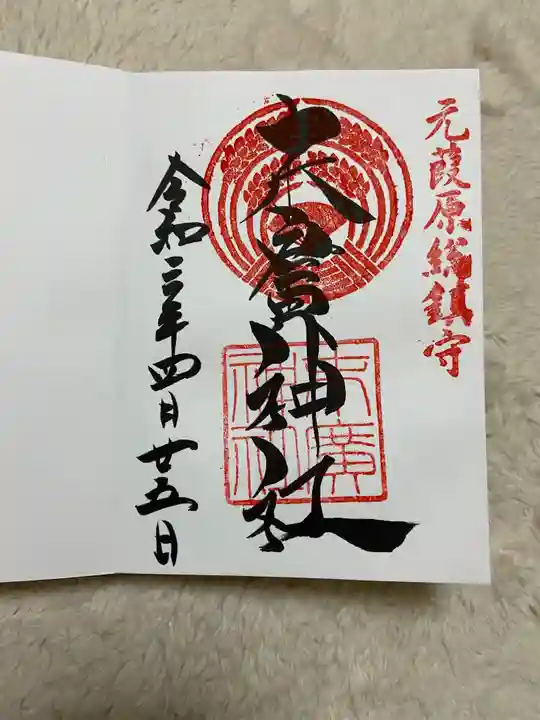 元葭原総鎮守
末廣神社
末廣
神社
令和三年四月廿五日